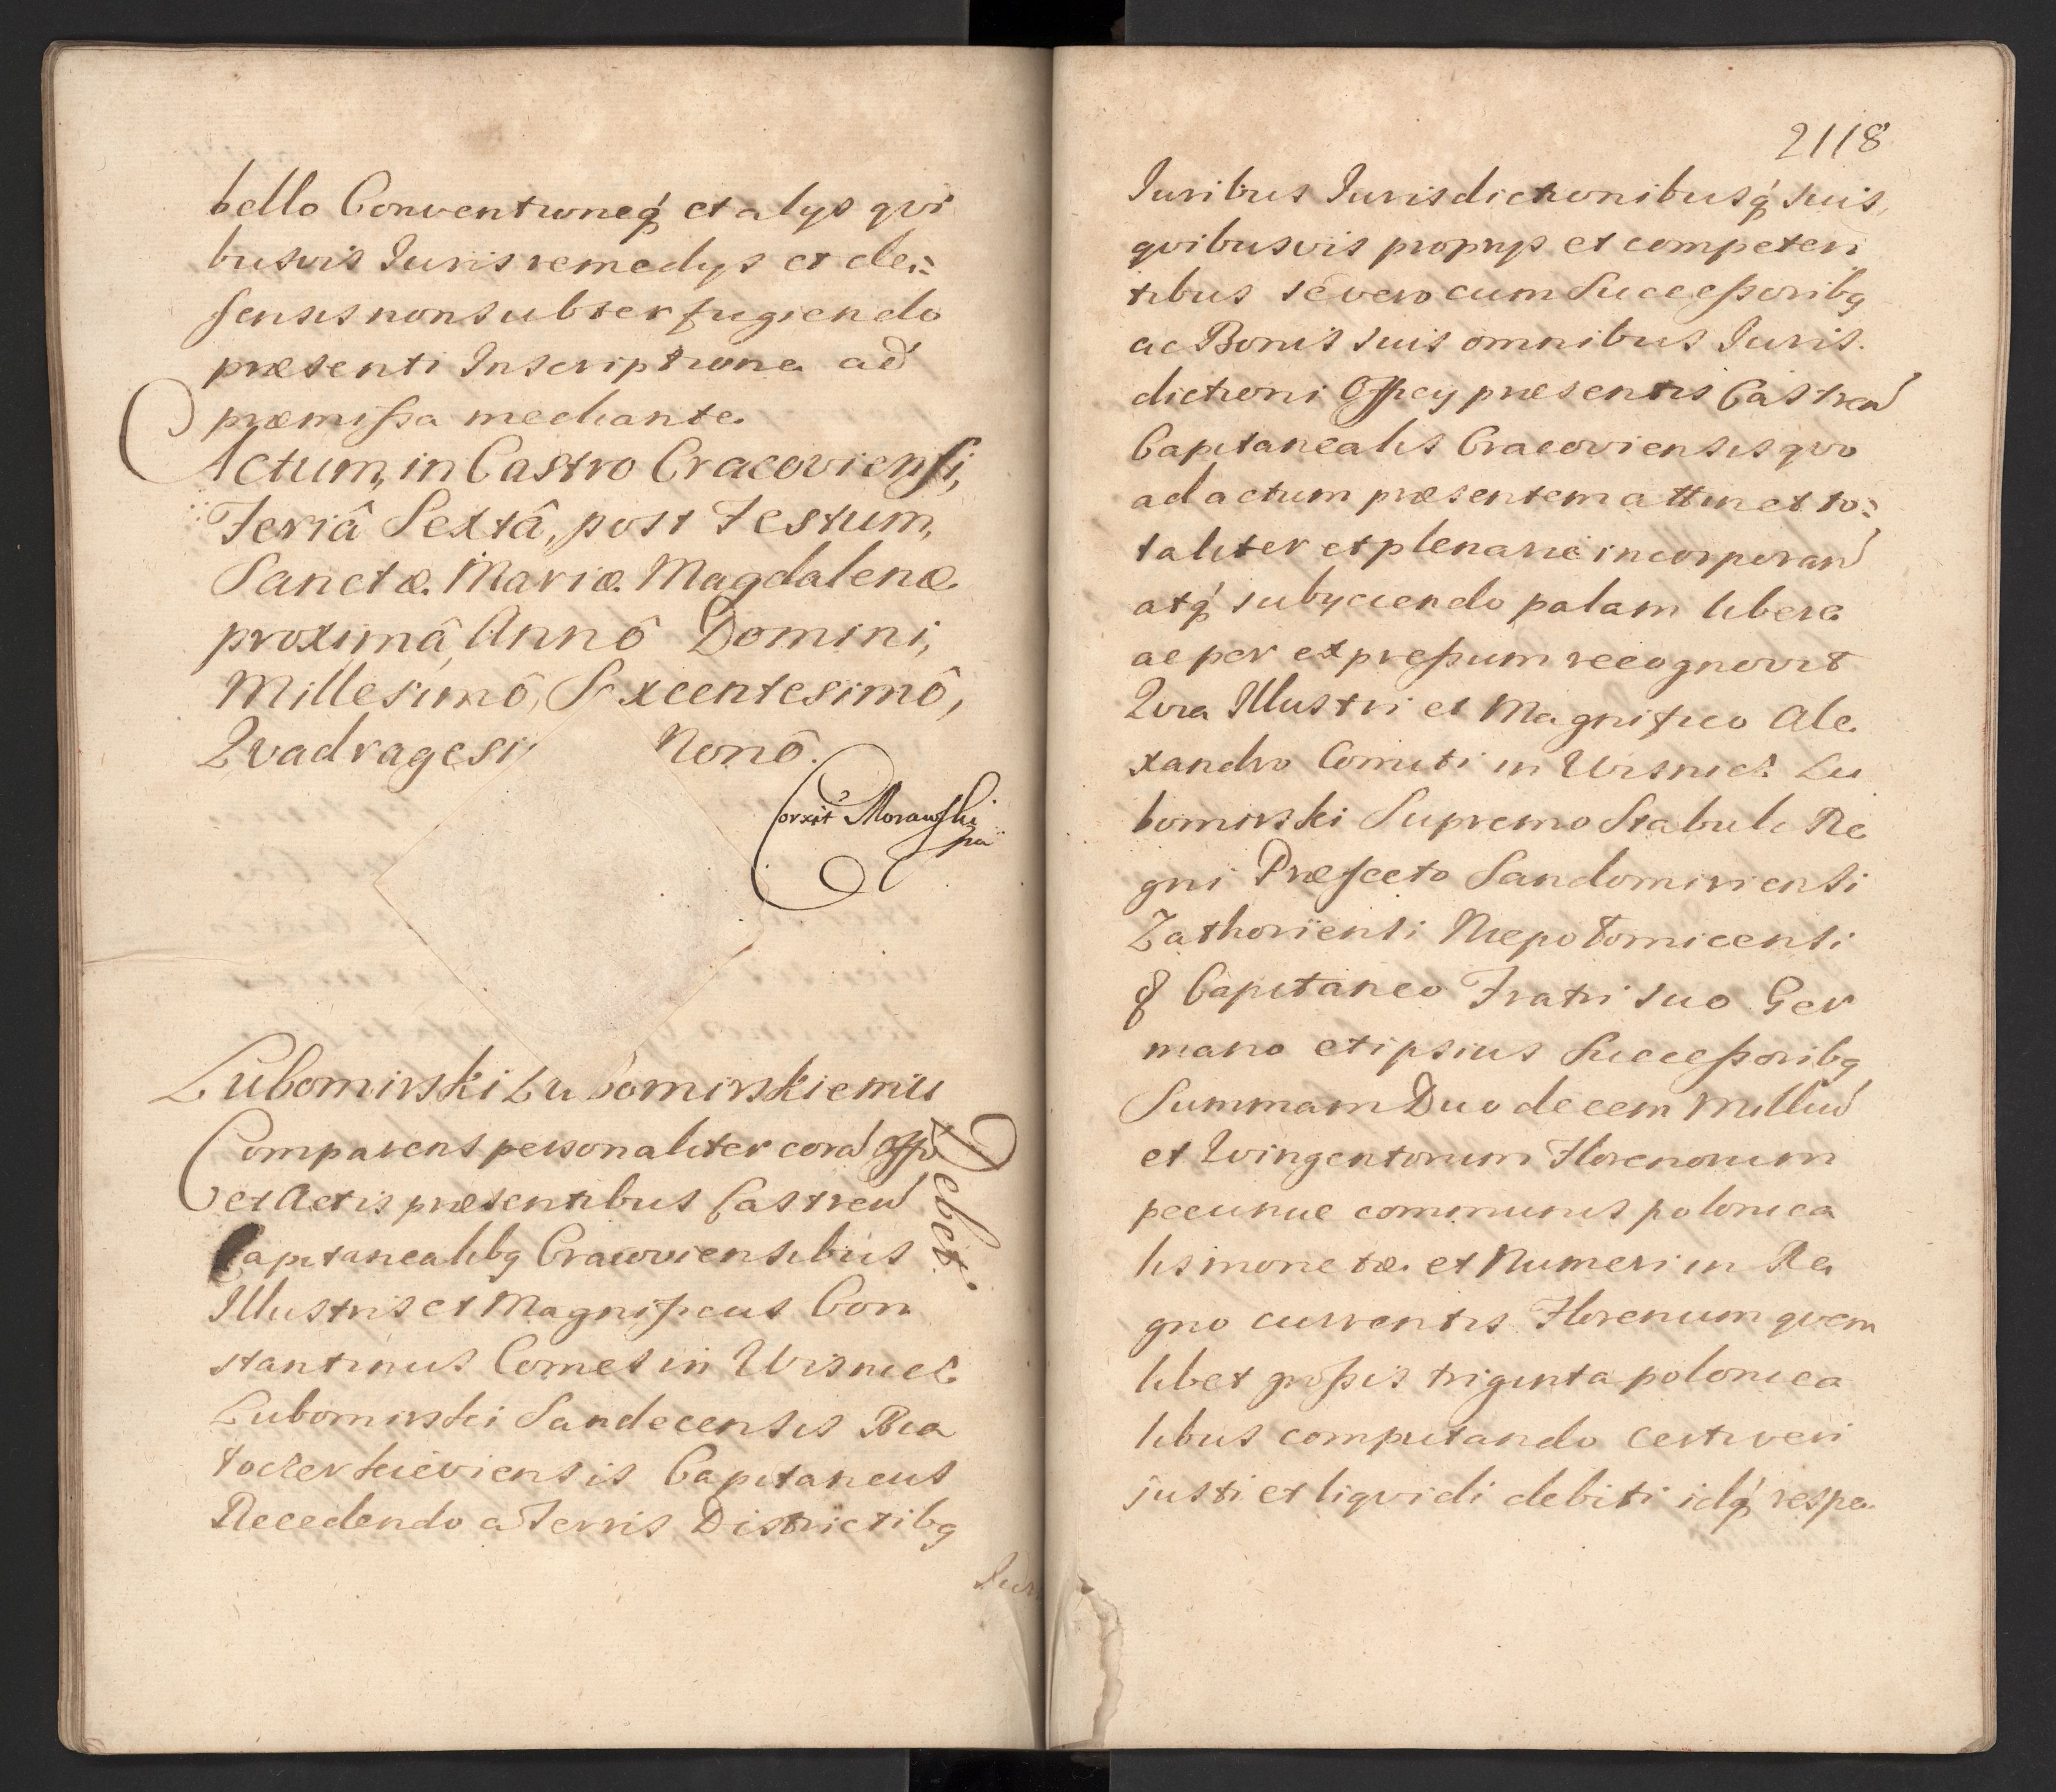 bello Conventioneq́ et alys qvi
busvis Iuris remedys et de:
fensis non subterfugiendo
præsenti Inscriptione ad
præmissa mediante.
Actum, in Castro Cracoviensi,
Feriâ Sextâ, post Festum,
Sanctæ Mariæ Magdalenæ
proximâ, Annô Domini,
Millesimô, Sexcentesimô,
Qvadragesi Nonô.
Corxit Morawski
Lubomirski Lubomirskiemu
Debet.
Comparens personaliter corā Offō
et Actis præsentibus Castren̄
Capitanealibq Cracoviensibus
Illustris et Magnificus Con
stantinus Comes in Wisnicz
Lubomirski Sandecensis Bia
łocerkieviensis Capitaneus
Recedendo a Terris Districtibq
Juri
2118
Iuribus Iurisdictionibusq́ suis,
qvibusvis proprys et competen
tibus se vero cum Successoribq
ac Bonis suis omnibus Iuris.
dictioni Officy præsentis Castren̄
Capitanealis Cracoviensis qvo
ad actum præsentem attinet to:
taliter et plenarie incorporan̄
atq́ subyciendo palam libere
ac per expressum recognovit
Qvia Illustri et Magnifico Ale
xandro Comiti in Wisnicz Lu
bomirski Supremo Stabuli Re
gni Præfecto Sandomiriensi
Zathoriensi Niepołomicensi
& Capitaneo Fratri suo Ger
mano et ipsius Successoribq
Summam Duodecem Milliū
et Qvingentorum Florenorum
pecuniæ communis polonica
lis monetæ et Numeri in Re
gno currentis Florenum qvem
libet grossis triginta polonica
libus computando certi veri
justi et liqvidi debiti idq́ respe